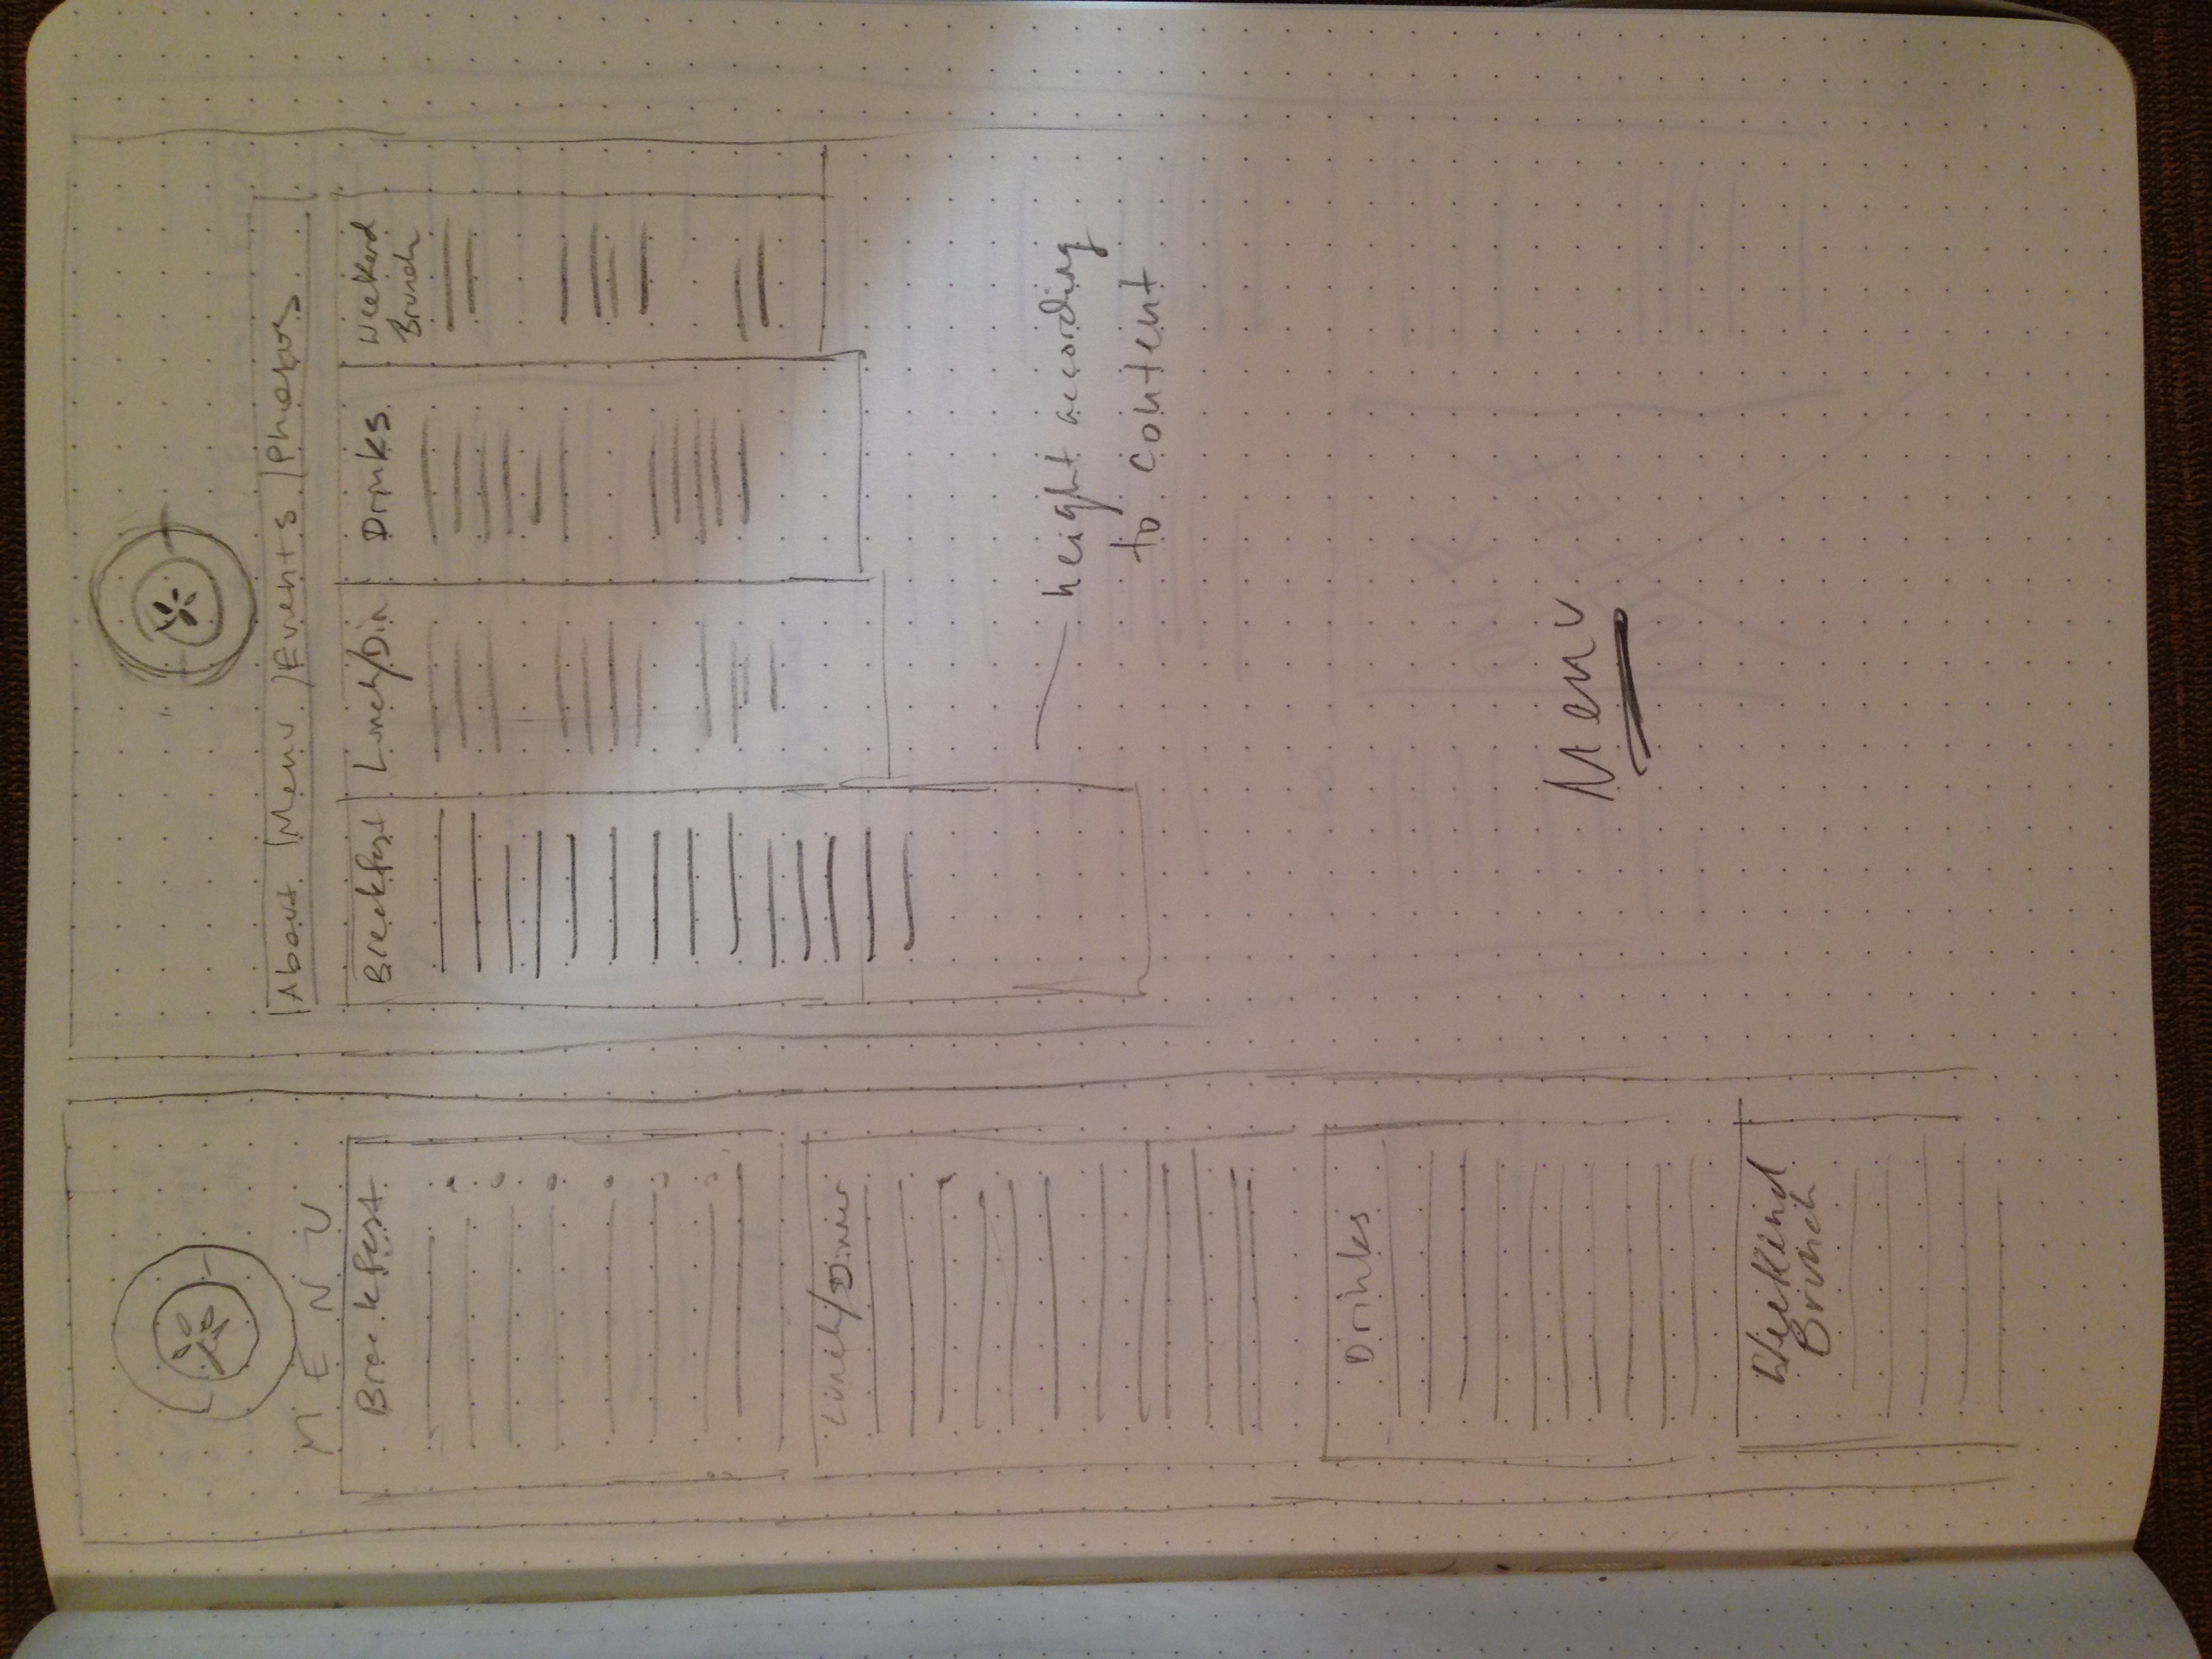 MENU
Breakfast
Lunch/Dinner
Drinks
Weekend
Brunch
About Menu Events Photos
Breakfast
Lunch/Din
Drinks
Weekend
Brunch
height according
to content
Menu